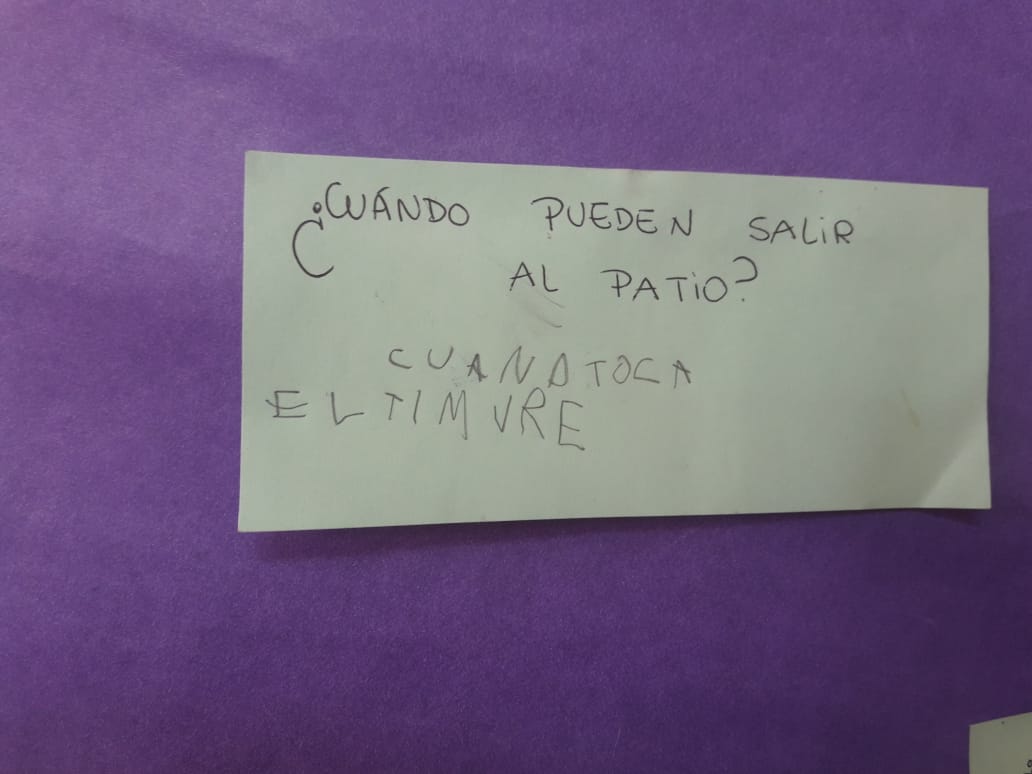 ¿CUÁNDO PUEDEN SALIR
AL PATIO?
CUANDTOCA
EL TIMVRE